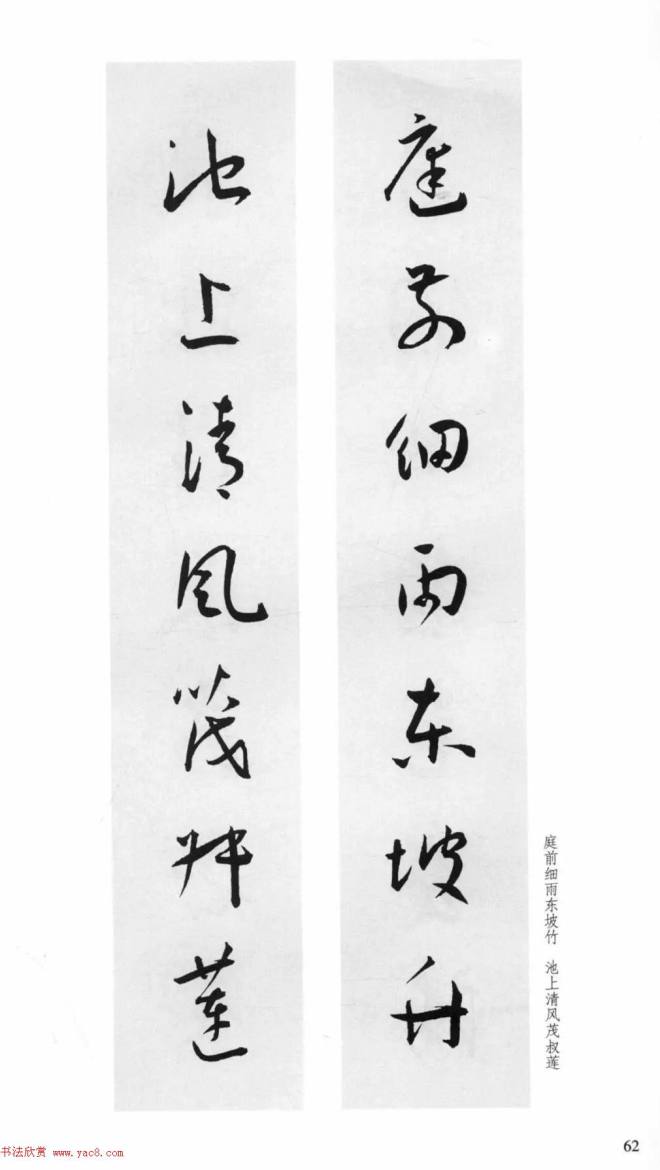 庭前细雨东坡竹
池上清风茂叔莲
庭前细雨东坡竹 池上清风茂叔莲
62
书法欣赏 www.yac8.com